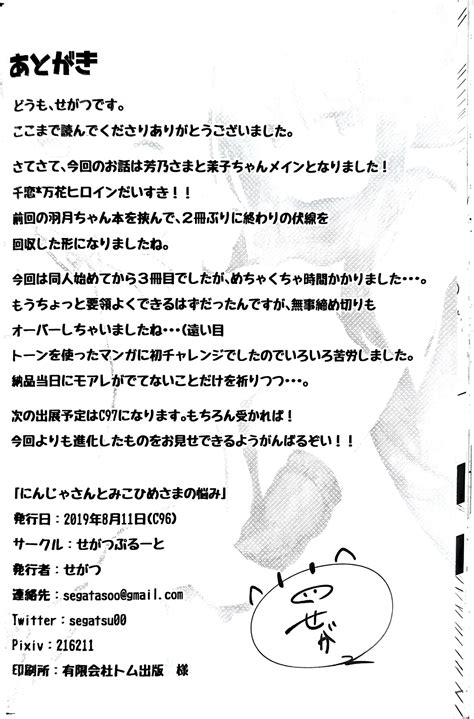 あとがき
どうも、せがつです。
ここまで読んでくださりありがとうございました。
さてさて、今回のお話は芳乃さまと茉子ちゃんメインとなりました!
千恋*万花ヒロインだいすき!!
前回の羽月ちゃん本を挟んで、2冊ぶりに終わりの伏線を
回収した形になりましたね。
今回は同人始めてから3冊目でしたが、めちゃくちゃ時間かかりました・・・。
もうちょっと要領よくできるはずだったんですが、無事締め切りも
オーバーしちゃいましたね・・・(遠い目
トーンを使ったマンガに初チャレンジでしたのでいろいろ苦労しました。
納品当日にモアレがでてないことだけを祈りつつ・・・。
次の出展予定はC97になります。もちろん受かれば!
今回よりも進化したものをお見せできるようがんばるぞい!!
「にんじゃさんとみこひめさまの悩み」
発行日:2019年8月11日(C96)
サークル:せがつぷるーと
発行者:せがつ
連絡先:segatasoo@gmail.com
Twitter:segatsu00
Pixiv:216211
印刷所:有限会社トム出版 様
せがつ